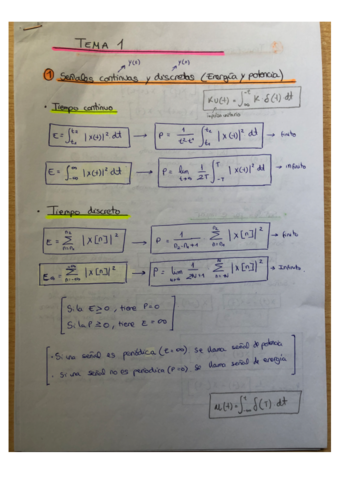 TEMA 1
y(x) y(x)
① Señales continuas y discretas (Energía y potencia)
K u(t) = ∫_{-∞}^{t} K δ(t) dt
• Tiempo continuo
E = ∫_{t1}^{t2} |x(t)|² dt → P = 1/(t2-t1) ∫_{t1}^{t2} |x(t)|² dt → finito
E = ∫_{-∞}^{∞} |x(t)|² dt → P = lim 1/2T ∫_{-T}^{T} |x(t)|² dt → infinito
• Tiempo discreto
E = Σ |x[n]|² → P = Σ |x[n]|² → finito
E∞ = Σ |x[n]|² → P = lim Σ |x[n]|² → Infinito
Si la E ≥ 0, tiene P=0
Si la P ≥ 0, tiene E=∞
- Si una señal es periódica (E=∞) se llama señal de potencia
- Si una señal no es periódica (P=0) se llama señal de energía
u(t) = ∫_{-∞}^{t} δ(T) dt